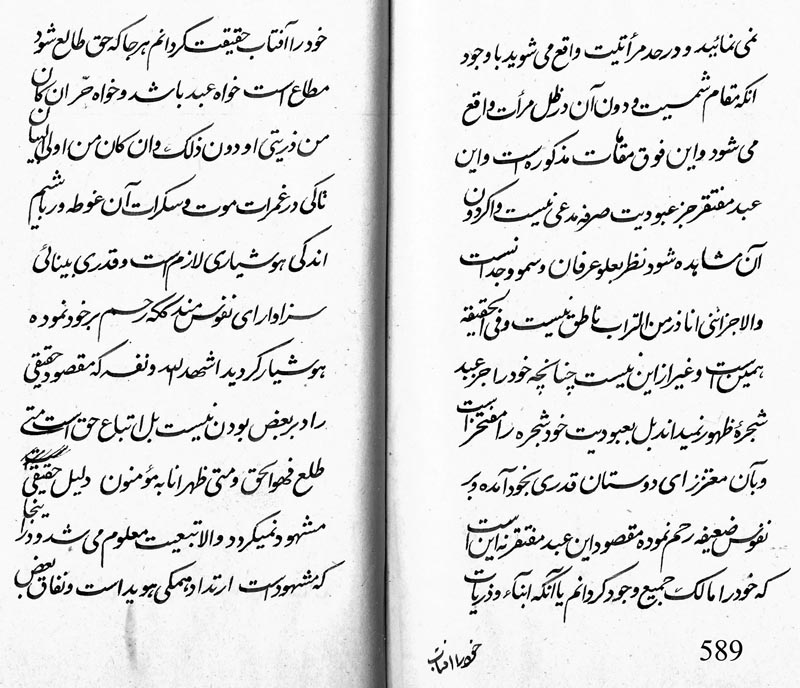 نمی نمائید و در حد مرأتیت واقع می شوید با وجود
انکه مقام شمسیت و دون آن در ظل مرأت واقع
می شود و این فوق مقامات مذکوره است و این
عبد مفتقر جز عبودیت صرفه مدعی نیست و اکر دون
آن مشاهده شود نظر بعلو عرفان و سمو وجد انست
والا جز اننی انا ذر من التراب ناطق نیست و فی الحقیقة
همین است و غیر از این نیست چنانچه خود را جز عبد
شجرهٔ ظهور نمیداند بل بعبودیت خود شجره را مفتخر است
و بآن معتزز ای دوستان قدری بخود آمده و بر
نفوس ضعیفه رحم نموده مقصود این عبد مفتقر نه این است
که خود را مالک جمیع وجود کردانم یا آنکه ابنآء و ذریات
خود را افتاب
589
خود را آفتاب حقیقت کردانم هر جا که حق طالع شود
مطاع است خواه عبد باشد و خواه حرّ ان کان
من ذریتی او دون ذلک و ان کان من اولی النهایات
تا کی در غمرات موت و سکرات آن غوطه ور باشیم
اندکی هوشیاری لازم است و قدری بینائی
سزاوار ای نفوس مندکه رحم بر خود نموده
هوشیار کردید اشهد الله و نفسه که مقصود حقیقی
رادبر بعض بودن نیست بل اتباع حق است متی
طلع فهو الحق و متی ظهر انا به مؤمنون دلیل حقیقی
مشهود نمیکردد والا تبعیت معلوم می شد و در اینجا
که مشهود است ارتداد همکی هویدا است و نفاق بعض